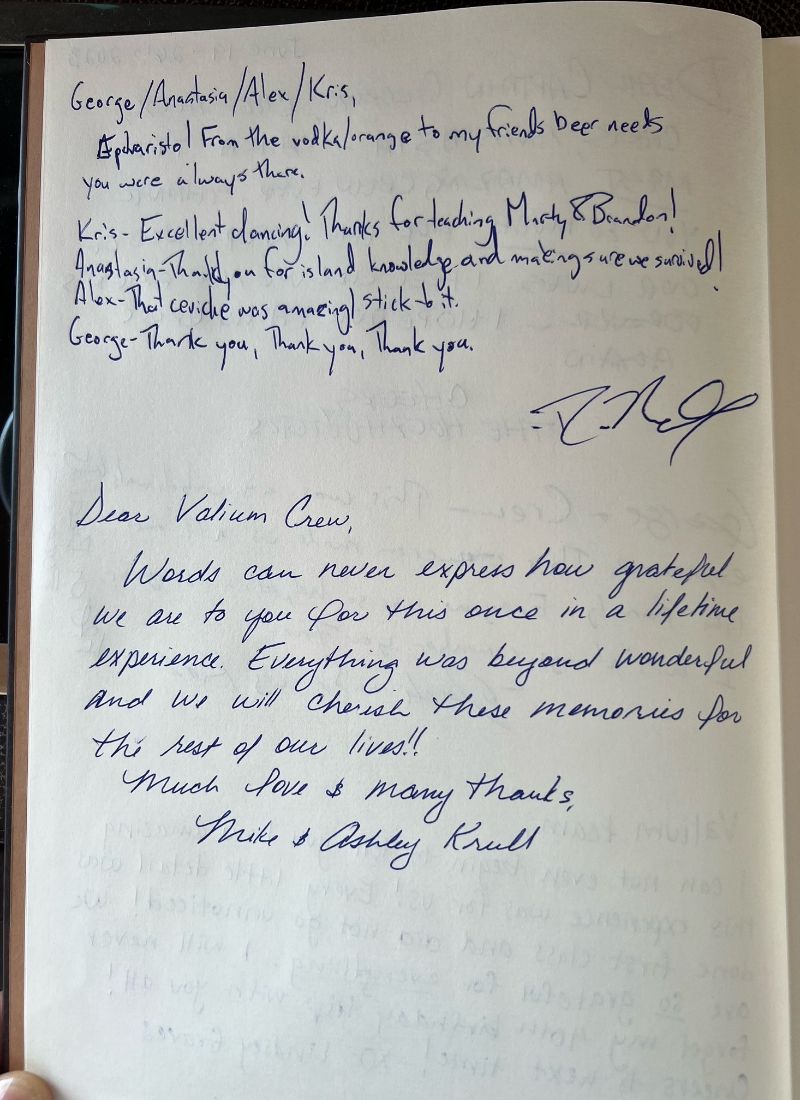 George/Anastasia/Alex/Kris,
Epharisto! From the vodka/orange to my friends beer needs
you were always there.
Kris- Excellent dancing! Thanks for teaching Marty & Brandon!
Anastasia-Thank you for island knowledge and making sure we survived!
Alex-That ceviche was amazing! stick to it.
George-Thank you, Thank you, Thank you.
Dear Valium Crew,
Words can never express how grateful
we are to you for this once in a lifetime
experience. Everything was beyond wonderful
and we will cherish these memories for
the rest of our lives!!
Much love & many thanks,
Mike & Ashley Krull